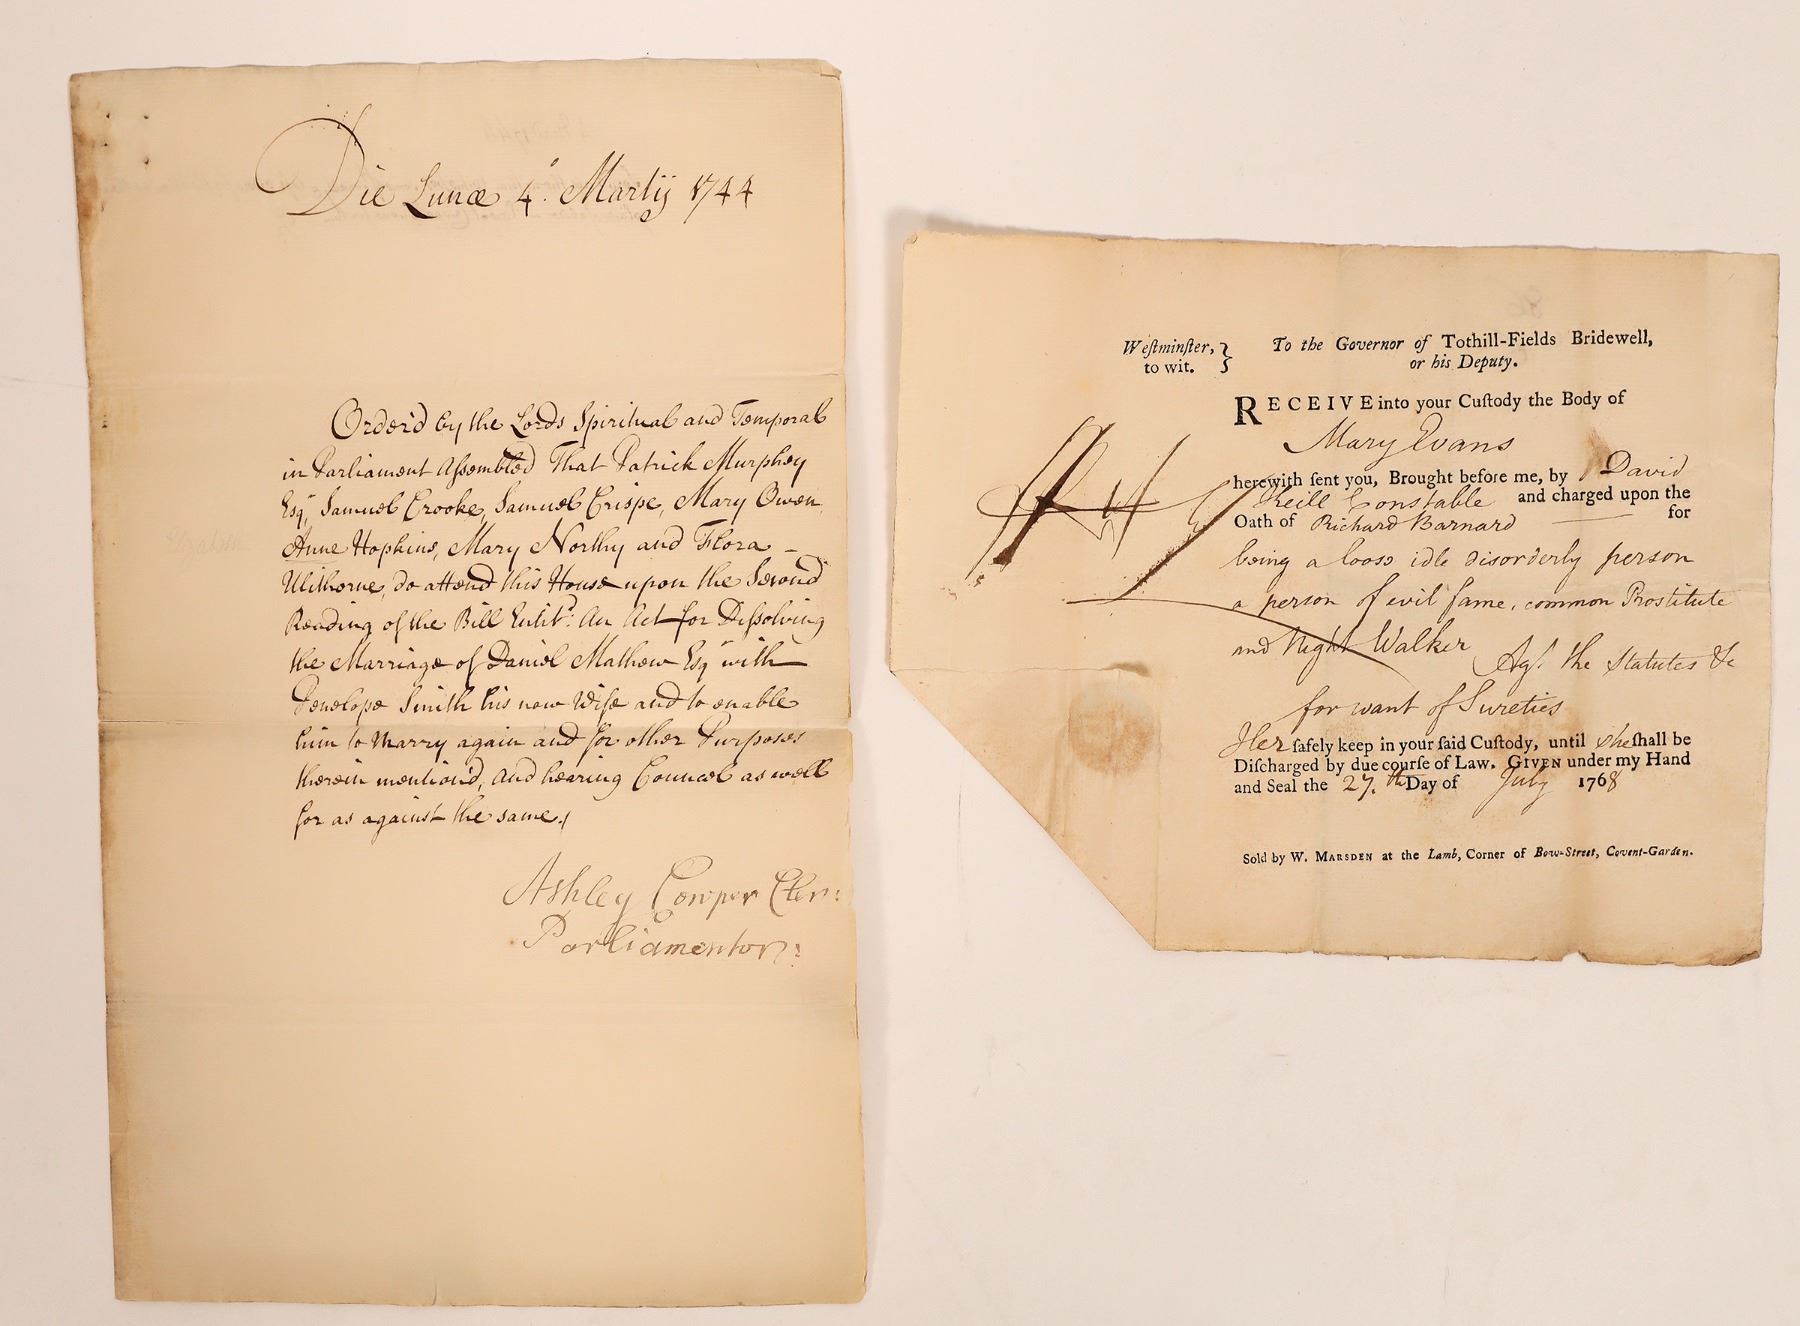 Die Lunæ 4.° Martij 1744
Order'd by the Lords Spiritual and Temporal
in Parliament Assembled That Patrick Murphey
Esqr, Samuel Crooke, Samuel Crispe, Mary Owen,
Anne Hopkins, Mary Northy and Flora –
Ulithorne, do attend this House upon the Second
Reading of the Bill Entit.d An Act for Dissolving
the Marriage of Daniel Mathew Esqr with
Penelope Smith his now Wife and to enable
him to Marry again and for other Purposes
therein mention'd, and hearing Councel as well
for as against the same./
Ashley Cowper Cler:
Parliamentor:
Elizabeth
Weſtminſter, } To the Governor of Tothill-Fields Bridewell,
to wit. or his Deputy.
RECEIVE into your Cuſtody the Body of
Mary Evans
herewith ſent you, Brought before me, by David
Constable and charged upon the
Oath of Richard Barnard for
being a loose idle disorderly person
a person of evil fame, common Prostitute
and Night Walker Agt. the Statutes &c
for want of Sureties
Her ſafely keep in your ſaid Cuſtody, until she ſhall be
Diſcharged by due courſe of Law. GIVEN under my Hand
and Seal the 27.th Day of July 1768
Sold by W. MARSDEN at the Lamb, Corner of Bow-Street, Covent-Garden.